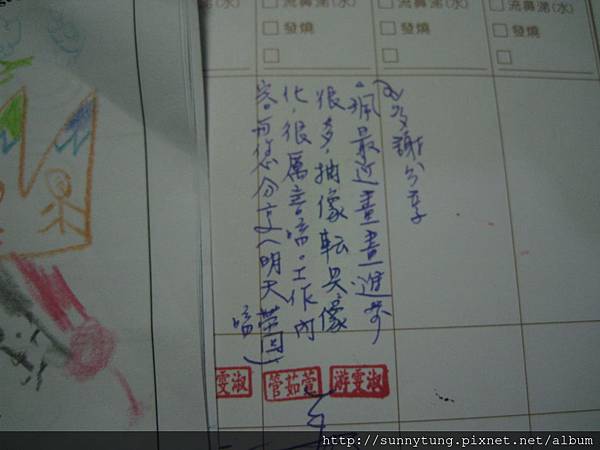 流鼻涕(水) 流鼻涕(水) 流鼻涕(水) 流鼻涕(水)
□ 發燒 □ 發燒 □ 發燒
多謝分享
最近畫畫進步
很多,抽像転具像
化,很厲害喔。工作內
容再 您分享(明天帶回
喔)
雯淑 管茹 游雯淑
http://sunnytung.pixnet.net/album